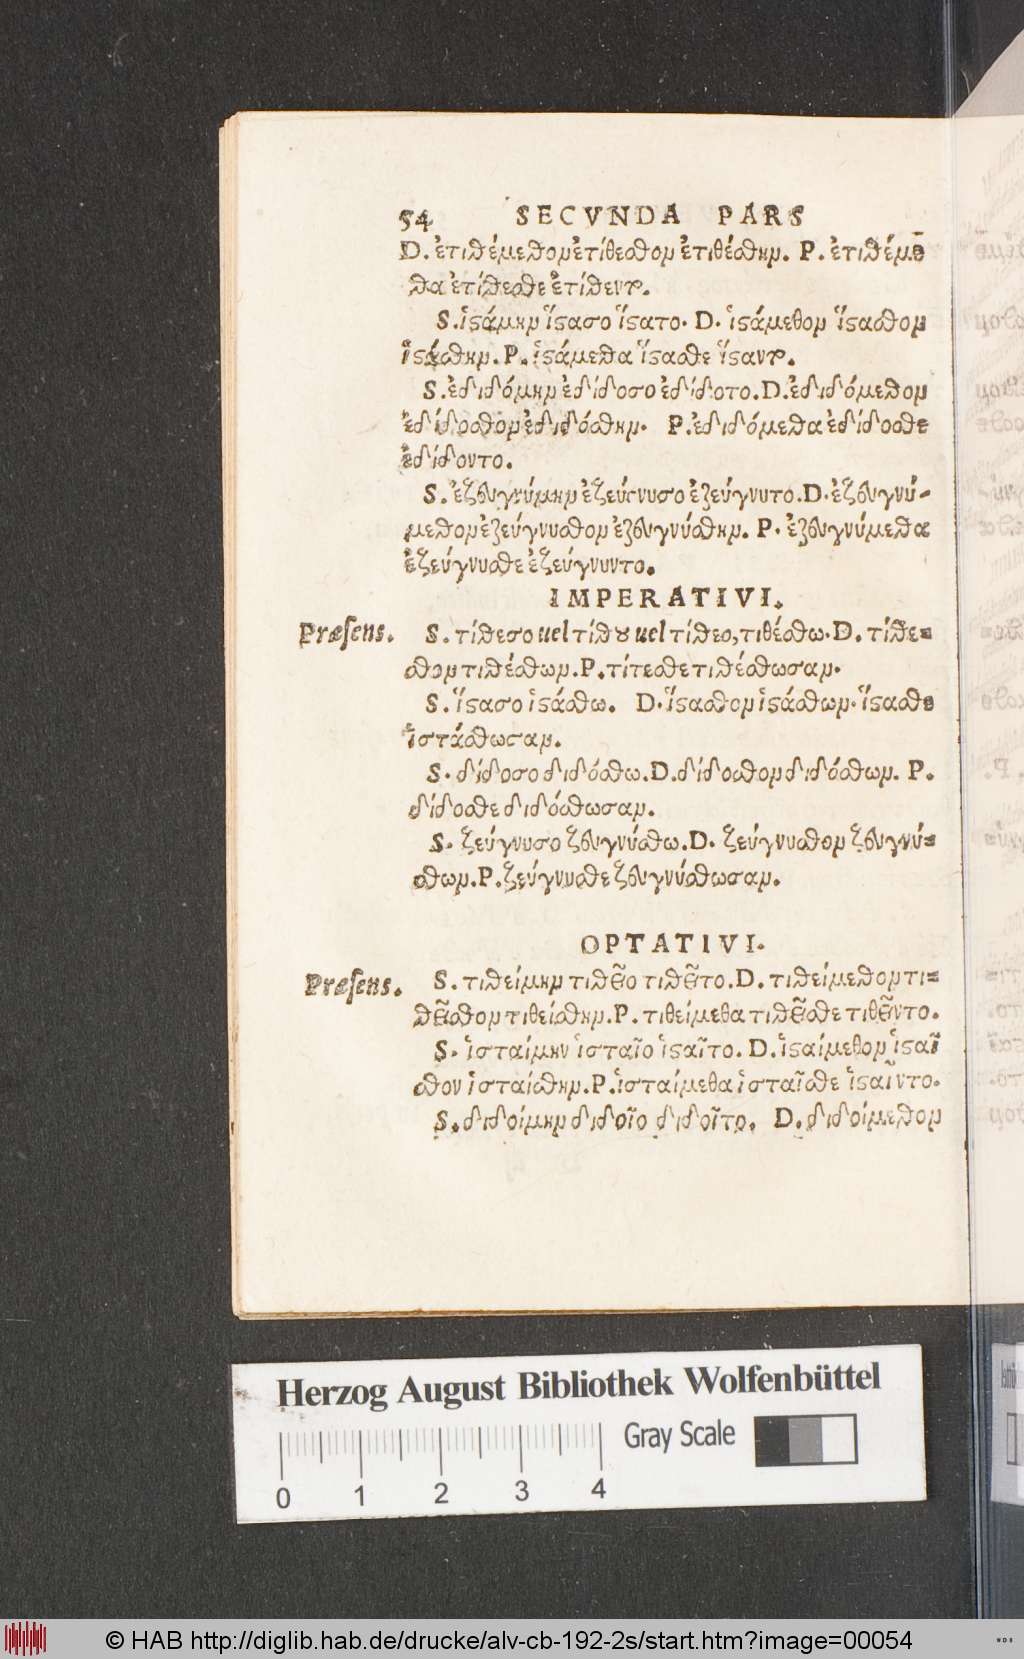 54 SECVNDA PARS
D. ἐτιθέμεθον ἐτίθεσθον ἐτιθέσθην. P. ἐτιθέμε
θα ἐτίθεσθε ἐτίθεντο.
S. ἱϛάμην ἵϛασο ἵϛατο. D. ἱϛάμεθον ἵϛασθον
ἱϛάσθην. P. ἱϛάμεθα ἵϛασθε ἵϛαντο.
S. ἐδιδόμην ἐδίδοσο ἐδίδοτο. D. ἐδιδόμεθον
ἐδίδοσθον ἐδιδόσθην. P. ἐδιδόμεθα ἐδίδοσθε
ἐδίδοντο.
S. ἐζευγνύμην ἐζεύγνυσο ἐζεύγνυτο. D. ἐζευγνύ-
μεθον ἐζεύγνυσθον ἐζευγνύσθην. P. ἐζευγνύμεθα
ἐζεύγνυσθε ἐζεύγνυντο.
IMPERATIVI.
Præsens. S. τίθεσο uel τίθου uel τίθεο, τιθέσθω. D. τίθε=
σθον τιθέσθων. P. τίτεσθε τιθέσθωσαν.
S. ἵϛασο ἱϛάσθω. D. ἵϛασθον ἱϛάσθων. ἵϛασθε
ἱστάσθωσαν.
S. δίδοσο διδόσθω. D. δίδοσθον διδόσθων. P.
δίδοσθε διδόσθωσαν.
S. ζεύγνυσο ζευγνύσθω. D. ζεύγνυσθον ζευγνύ=
σθων. P. ζεύγνυσθε ζευγνύσθωσαν.
OPTATIVI.
Præsens. S. τιθείμην τιθεῖο τιθεῖτο. D. τιθείμεθον τι=
θεῖσθον τιθείσθην. P. τιθείμεθα τιθεῖσθε τιθεῖντο.
S. ἱσταίμην ἱσταῖο ἱϛαῖτο. D. ἱϛαίμεθον ἱϛαῖ
σθον ἱσταίσθην. P. ἱσταίμεθα ἱσταῖσθε ἱϛαῖντο.
S. διδοίμην διδοῖο διδοῖτο. D. διδοίμεθον
Herzog August Bibliothek Wolfenbüttel
Gray Scale
0 1 2 3 4
© HAB http://diglib.hab.de/drucke/alv-cb-192-2s/start.htm?image=00054